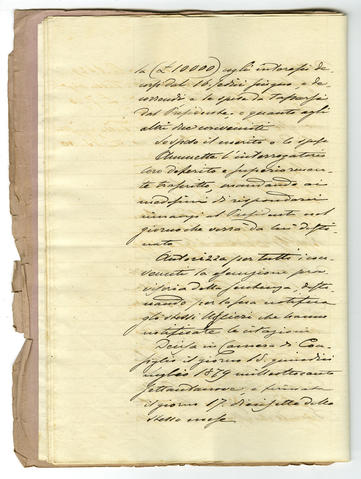 la (£ 10000) cogli interessi de
corsi dal 16 sedici giugno, e de
correndi e le spese da tassarsi
dal Presidente, e quanto agli
altri due convenuti
Sospeso il merito e le spese
Ammette l'interrogatorio
loro deferito e superiormen
te trascritto, mandando ai
medesimi di rispondervi
innanzi al Presidente nel
giorno che verrà da lui desti
nato
Autorizza per tutti i con
venuti la esecuzione prov
visoria della sentenza, desti
nando per la sua notifica
gli stessi Uscieri che hanno
notificate le citazioni
Decisa in Camera di Con
siglio il giorno 15 quindici
luglio 1879 milleottocento
settantanove, e firmata
il giorno 17 diciasette dello
stesso mese